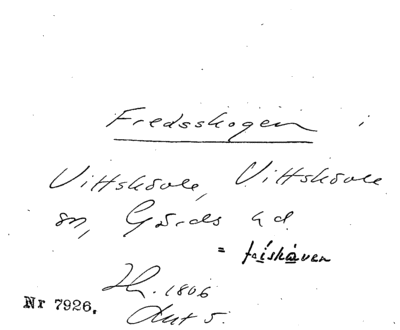 Fredsskogen i
Vittskövle, Vittskövle
sn, Gärds hd.
= frisháven
Lh. 1806
Akt 5.
Nr 7926.